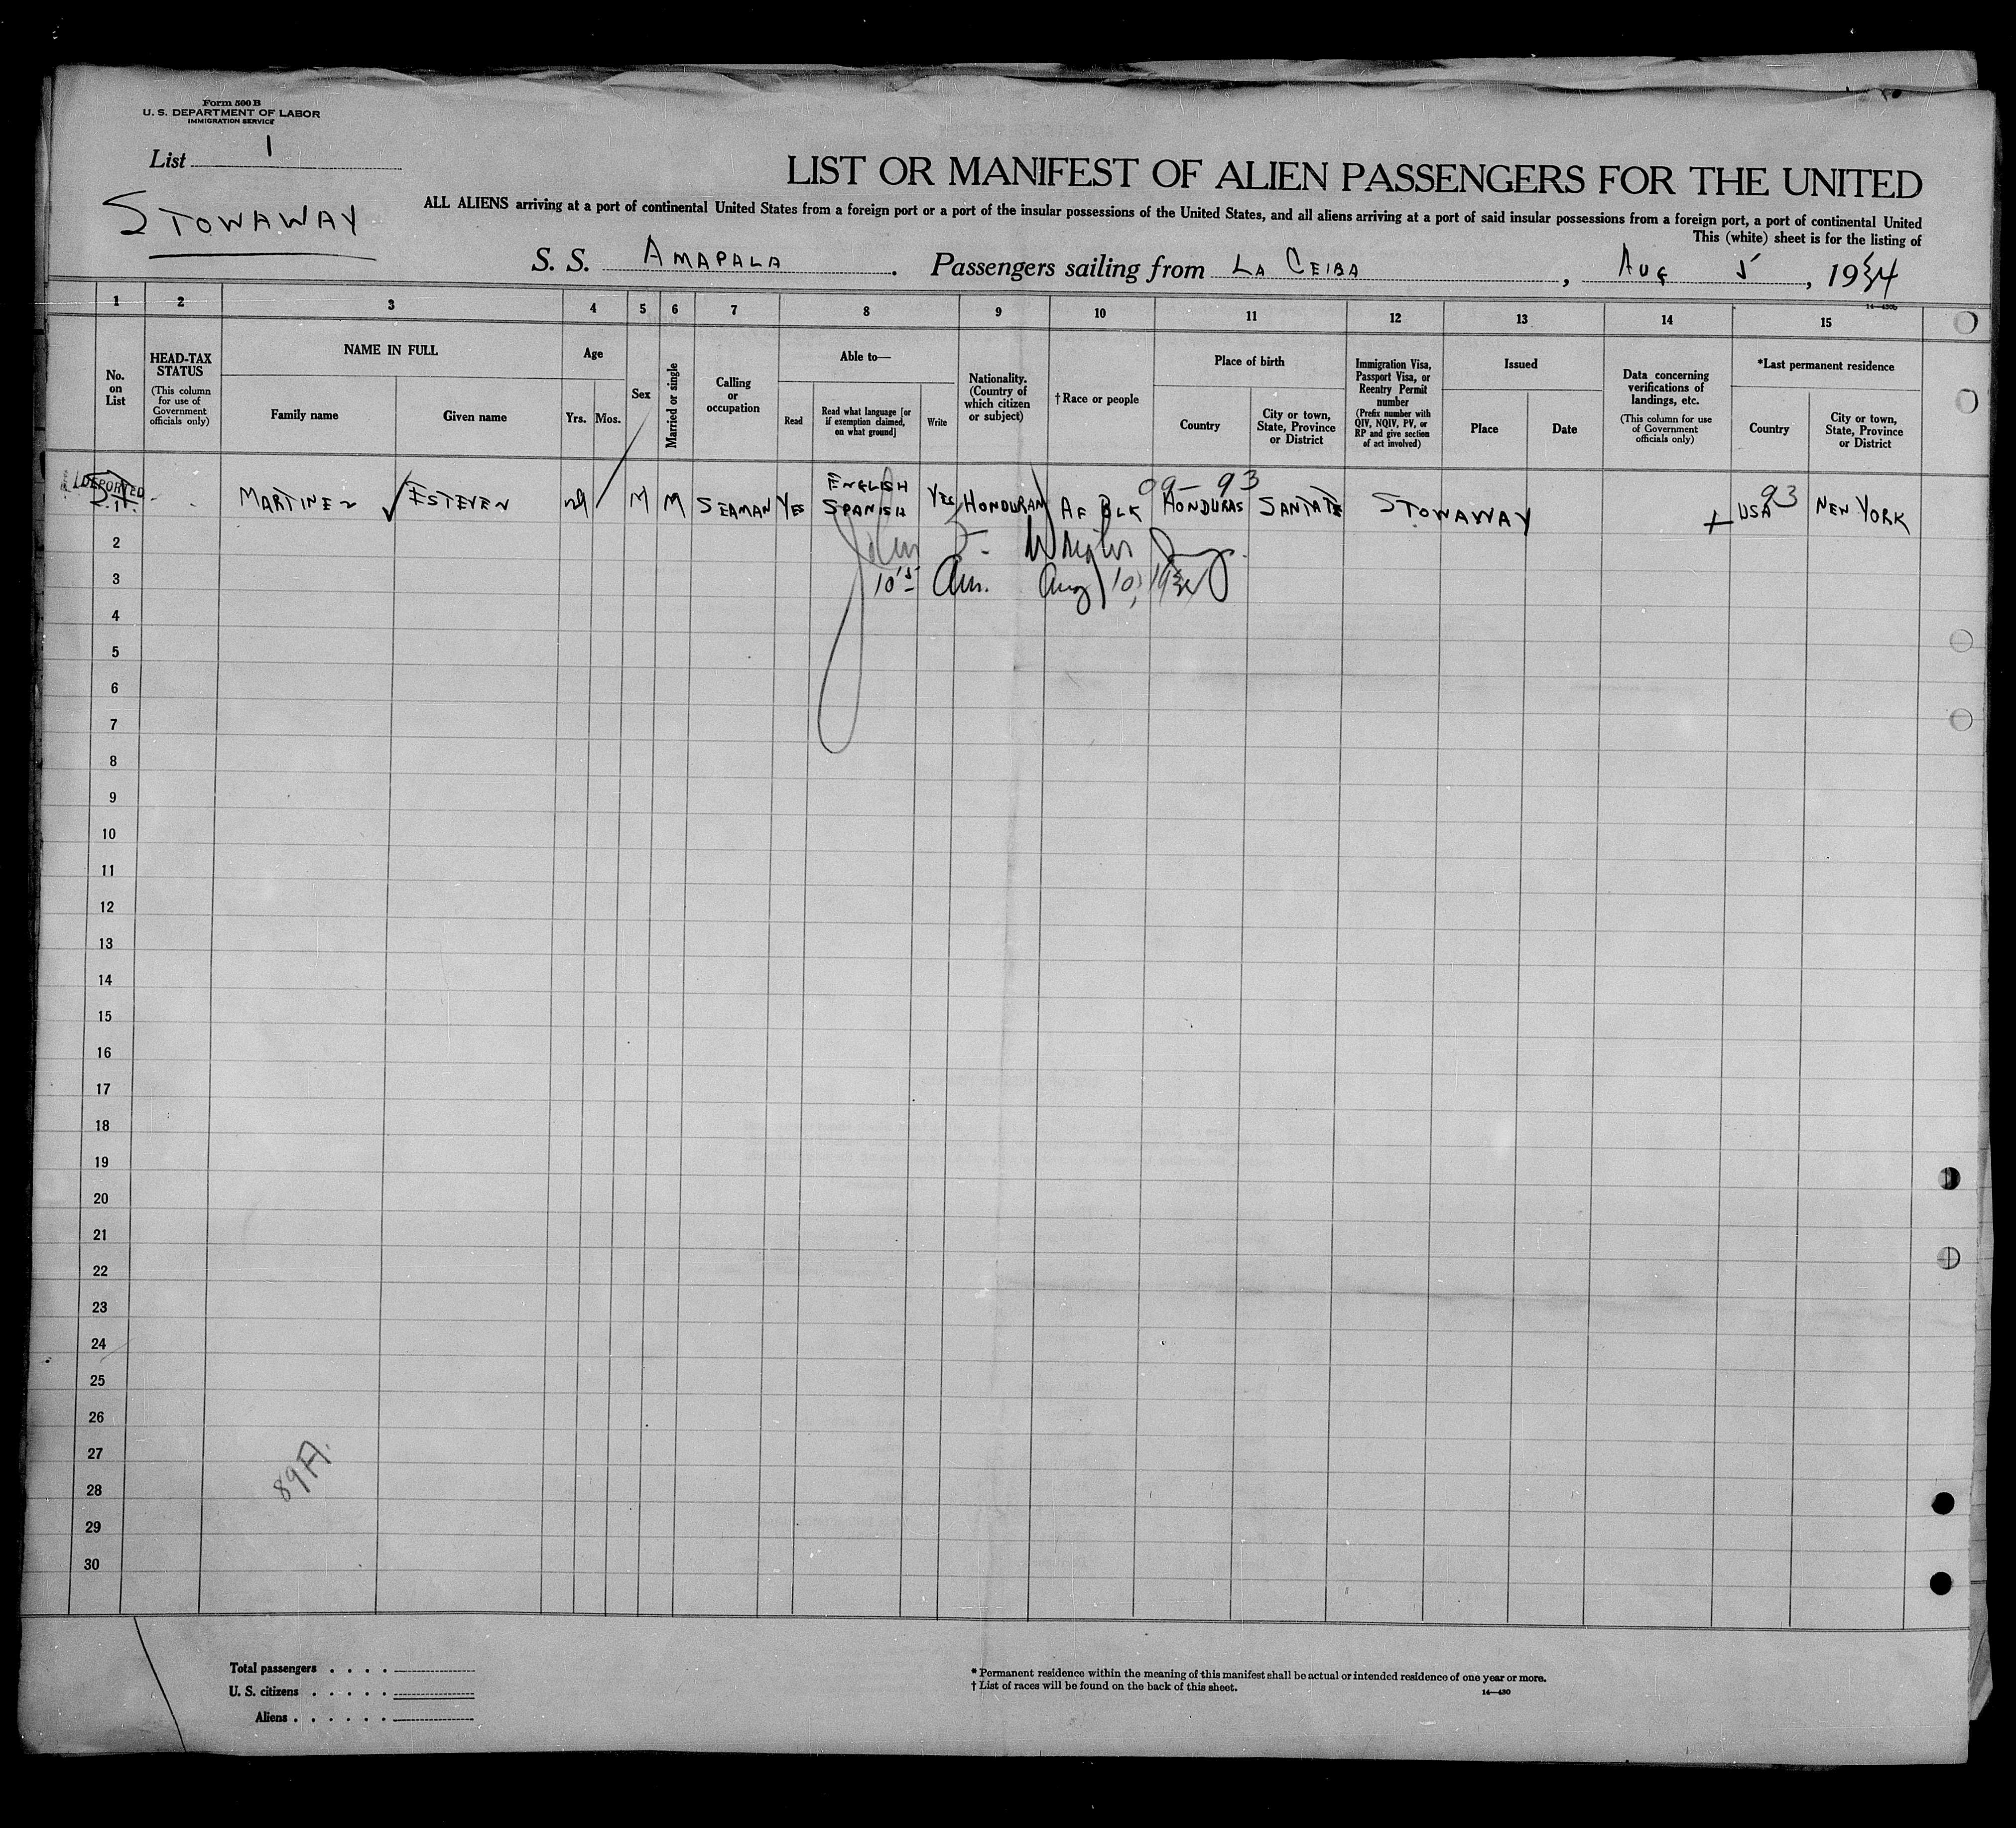 Form 500 B
U. S. DEPARTMENT OF LABOR
IMMIGRATION SERVICE
List 1
STOWAWAY
LIST OR MANIFEST OF ALIEN PASSENGERS FOR THE UNITED
ALL ALIENS arriving at a port of continental United States from a foreign port or a port of the insular possessions of the United States, and all aliens arriving at a port of said insular possessions from a foreign port, a port of continental United
This (white) sheet is for the listing of
S. S. AMAPALA. Passengers sailing from LA CEIBA, AUG 5, 1934
14—430b
1 2 3 4 5 6 7 8 9 10 11 12 13 14 15
No. on List
HEAD-TAX STATUS
(This column for use of Government officials only)
NAME IN FULL
Family name
Given name
Age
Yrs. Mos.
Sex
Married or single
Calling or occupation
Able to—
Read
Read what language [or if exemption claimed, on what ground]
Write
Nationality. (Country of which citizen or subject)
†Race or people
Place of birth
Country
City or town, State, Province or District
Immigration Visa, Passport Visa, or Reentry Permit number
(Prefix number with QIV, NQIV, PV, or RP and give section of act involved)
Issued
Place
Date
Data concerning verifications of landings, etc.
(This column for use of Government officials only)
*Last permanent residence
Country
City or town, State, Province or District
DEPORTED
09-93
93
MARTINEZ ESTEVEN 29 M M SEAMAN YES ENGLISH SPANISH YES HONDURAN AF BLK HONDURAS SANTAFE STOWAWAY USA NEW YORK
2
John Wright
3
Am. Aug 10, 1934
4
5
6
7
8
9
10
11
12
13
14
15
16
17
18
19
20
21
22
23
24
25
26
27
28
29
30
89A.
Total passengers . . . .
U. S. citizens . . . . .
Aliens . . . . . .
* Permanent residence within the meaning of this manifest shall be actual or intended residence of one year or more.
† List of races will be found on the back of this sheet.
14—430